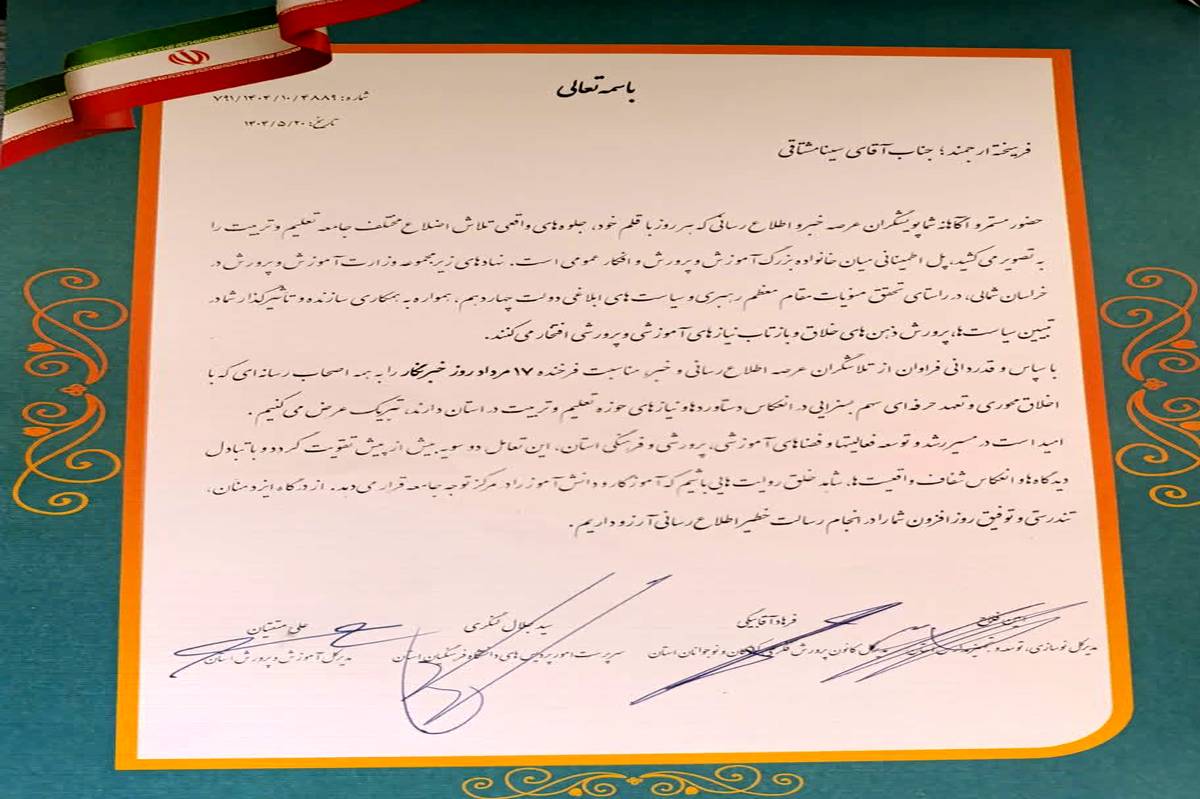 باسمه تعالی
شماره: ۷۹۱/۱۴۰۴/۱۰/۴۸۸۹
تاریخ: ۱۴۰۴/۵/۲۰
فریخته ارجمند؛ جناب آقای سینا مشتاقی
حضور مستمر و آگاهانه شما پویشگران عرصه خبر و اطلاع رسانی که هر روز با قلم خود، جلوه های واقعی تلاش اضلاع مختلف جامعه تعلیم و تربیت را
به تصویر می کشید، پل اطمینانی میان خانواده بزرگ آموزش و پرورش و افکار عمومی است. نهادهای زیرمجموعه وزارت آموزش و پرورش در
خراسان شمالی، در راستای تحقق منویات مقام معظم رهبری و سیاست های ابلاغی دولت چهاردهم، همواره به همکاری سازنده و تأثیرگذار شما در
تبیین سیاست ها، پرورش ذهن های خلاق و بازتاب نیازهای آموزشی و پرورشی افتخار می کنند.
با سپاس و قدردانی فراوان از تلاشگران عرصه اطلاع رسانی و خبر، مناسبت فرخنده ۱۷ مرداد روز خبرنگار را به همه اصحاب رسانه ای که با
اخلاق محوری و تعهد حرفه ای سهم بسزایی در انعکاس دستاوردها و نیازهای حوزه تعلیم و تربیت در استان دارند، تبریک عرض می کنیم.
امید است در مسیر رشد و توسعه فعالیتها و فضاهای آموزشی، پرورشی و فرهنگی استان، این تعامل دو سویه بیش از پیش تقویت گردد و با تبادل
دیدگاه ها و انعکاس شفاف واقعیت ها، شاهد خلق روایت هایی باشیم که آموزگار و دانش آموز را در مرکز توجه جامعه قرار می دهد. از درگاه ایزد منان،
تندرستی و توفیق روز افزون شما را در انجام رسالت خطیر اطلاع رسانی آرزو داریم.
مدیرکل نوسازی، توسعه و تجهیز
فرهاد آقابیگی
کانون پرورش فکری کودکان و نوجوانان استان
سید جلال لنگری
سرپرست امور پردیس های دانشگاه فرهنگیان استان
علی متقیان
مدیرکل آموزش و پرورش استان